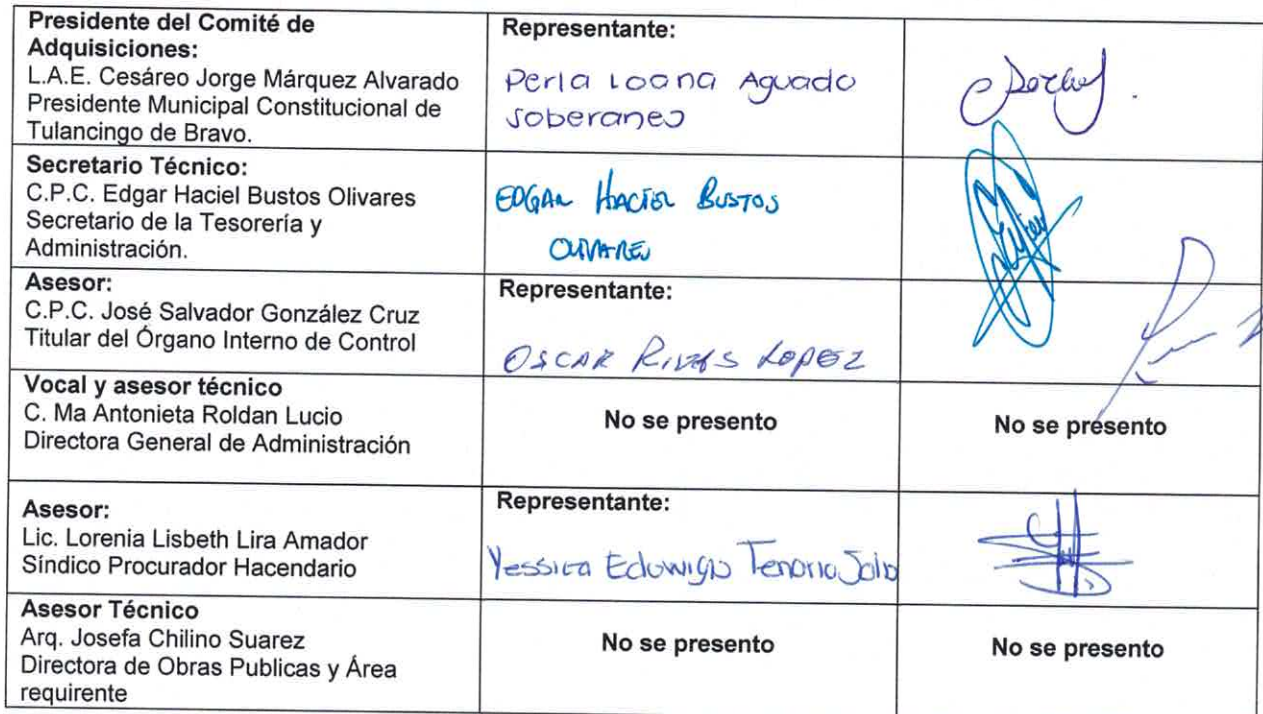 Presidente del Comité de
Adquisiciones:
L.A.E. Cesáreo Jorge Márquez Alvarado
Presidente Municipal Constitucional de
Tulancingo de Bravo.
Representante:
Perla Loana Aguado
Soberanes
Secretario Técnico:
C.P.C. Edgar Haciel Bustos Olivares
Secretario de la Tesorería y
Administración.
EDGAR HACIEL BUSTOS
OLIVARES
Asesor:
C.P.C. José Salvador González Cruz
Titular del Órgano Interno de Control
Representante:
OSCAR RIVAS LOPEZ
Vocal y asesor técnico
C. Ma Antonieta Roldan Lucio
Directora General de Administración
No se presento
No se presento
Asesor:
Lic. Lorenia Lisbeth Lira Amador
Síndico Procurador Hacendario
Representante:
Yessica Eduwigis Tenorio
Asesor Técnico
Arq. Josefa Chilino Suarez
Directora de Obras Publicas y Área
requirente
No se presento
No se presento